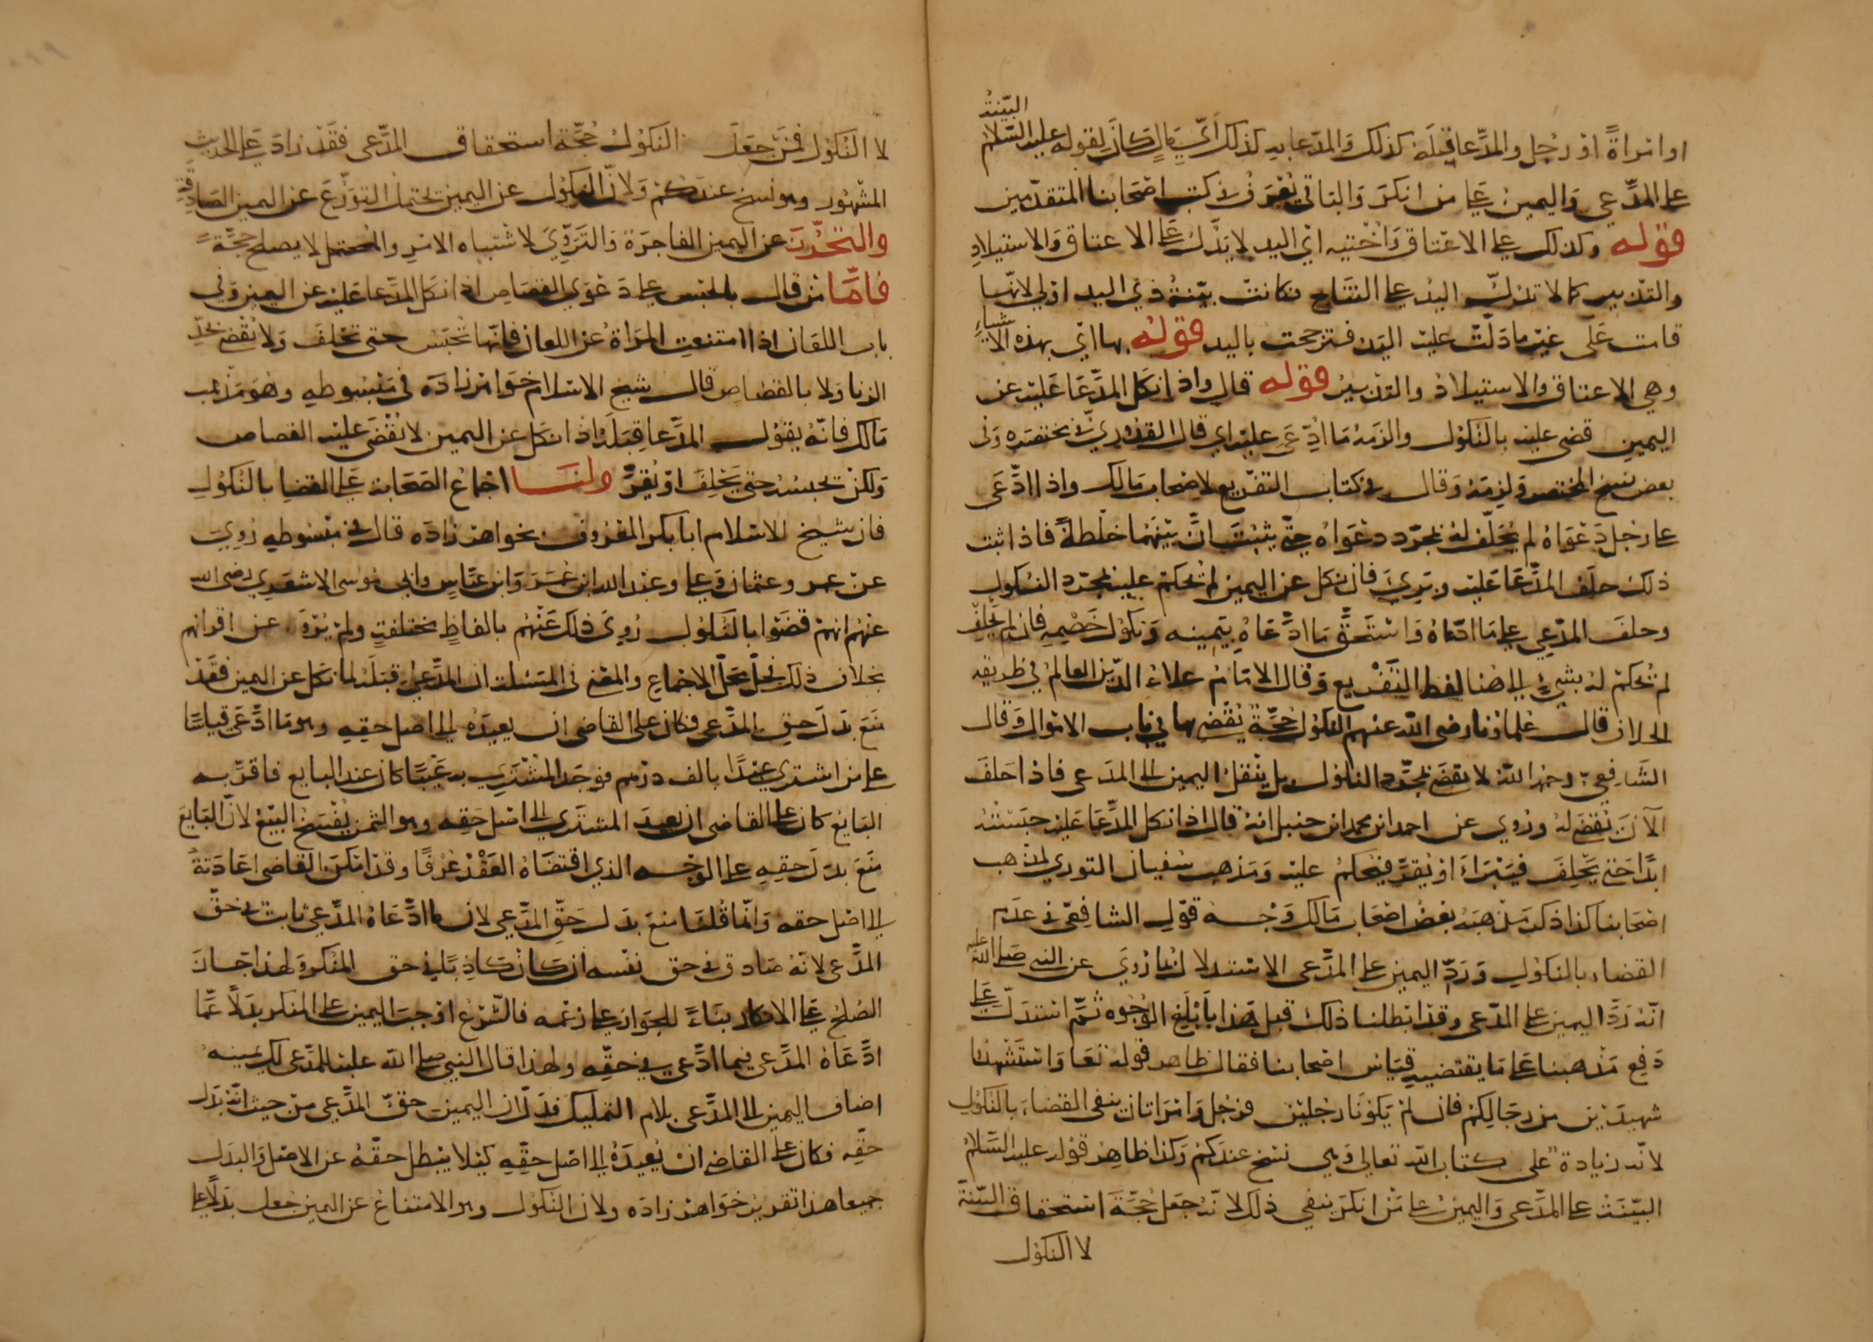 البينة
او امراةً او رجل والمدعا قبله كذلك والمدعا به كذلك اي مال كان لقوله عليه السلام
على المدعي واليمين على من انكر والباقي يعرف في كتب اصحابنا المتقدمين
قوله وكذلك على الاعتاق واختيه اي اليد لا يدل على الاعتاق والاستيلاد
والتدبير كما لا تدل اليد على النتاج فكانت بينة ذي اليد اولى لانها
قامت على غير ما دلت عليه اليد فترجحت باليد قوله بها اي بهذه الاشياء
وهي الاعتاق والاستيلاد والتدبير قوله قال واذا نكل المدعا عليه عن
اليمين قضي عليه بالنكول والزمه ما ادعي عليه اي قال القدوري في مختصره وفي
بعض نسخ المختصر ولزمه وقال في كتاب التفريع لاصحاب مالك واذا ادعى
على رجل دعواه لم يحلف له بمجرد دعواه حتى يثبت ان بينهما خلطة فاذا ثبت
ذلك حلف المدعا عليه وبري فان نكل عن اليمين لم يحكم عليه بمجرد النكول
وحلف المدعي على ما ادعاه واستحق ما ادعاه بيمينه ونكول خصمه فان لم يحلف
لم يحكم له بشيء الى هنا لفظ التفريع وقال الامام علاء الدين العالم في طريقة
الخلاف قال علماؤنا رضي الله عنهم النكول حجة يقضى بها في باب الاموال وقال
الشافعي رحمه الله لا يقضى بمجرد النكول بل ينقل اليمين الى المدعي فاذا حلف
الان يقضى له وروي عن احمد ابن محمد ابن حنبل انه قال اذا نكل المدعا عليه حبسته
ابدًا حتى يحلف فيبراء او يقر فيحكم عليه ومذهب سفيان الثوري لمذهب
اصحابنا كذا ذكر مذهبه بعض اصحاب مالك وجه قول الشافعي في عدم
القضاء بالنكول ورد اليمين على المدعي الاستدلال بما روي عن النبي صلى الله عليه
انه رد اليمين على المدعي وقد ابطلنا ذلك قبل هذا بابلغ الوجوه ثم استدل على
دفع مذهبنا على ما يقتضيه قياس اصحابنا فقال ظاهر قوله تعا واستشهدوا
شهيدين من رجالكم فان لم يكونا رجلين فرجل وامراتان ينفي القضاء بالنكول
لانه زيادة على كتاب الله تعالى وهي نسخ عندكم وكذا ظاهر قوله عليه السلام
البينة على المدعي واليمين على من انكر ينفي ذلك لانه جعل حجة استحقاق البينة
لا النكول
لا النكول فمن جعل النكول حجة استحقاق المدعي فقد زاد على الحديث
المشهور وهو نسخ عندكم ولان النكول عن اليمين يحتمل التورع عن اليمين الصادقة
والتحرز عن اليمين الفاجرة والتروي لاشتباه الامر والمحتمل لا يصلح حجة
فاما من قال بالحبس على دعوى القصاص اذا نكل المدعا عليه عن اليمين وفي
باب اللعان اذا امتنعت المراة عن اللعان فانها تحبس حتى تحلف ولا يقضى بحد
الزنا ولا بالقصاص قال شيخ الاسلام خواهرزاده في مبسوطه وهو مذهب
مالك فانه يقول المدعا قبله اذا نكل عن اليمين لا يقضى عليه القصاص
ولكن تحبسه حتى يحلف او يقر ولنا اجماع الصحابة على القضاء بالنكول
فان شيخ الاسلام ابا بكر المعروف بخواهرزاده قال في مبسوطه روي
عن عمر وعثمان وعلي وعبد الله ابن عمر وابن عباس وابي موسى الاشعري رضي الله
عنهم انهم قضوا بالنكول روي ذلك عنهم بالفاظ مختلفة ولم يرو عن اقرانهم
بخلاف ذلك فحل محل الاجماع والمعنى في المسئلة ان المدعي قبله لما نكل عن اليمين فقد
منع بدل حق المدعي فكان على القاضي ان يعيده الى اصل حقه وهو ما ادعى قياسًا
على من اشترى عبدًا بالف درهم فوجد المشتري به عيبًا كان عند البايع فاقر به
البايع كان على القاضي ان يعيد المشتري الى اصل حقه وهو الثمن بفسخ البيع لان البايع
منع بدل حقه على الوجه الذي اقتضاه العقد عرفًا وقد امكن القاضي اعادته
الى اصل حقه وانما قلنا منع بدل حق المدعي لان ما ادعاه المدعي ثابت حق
المدعي لانه صادق في حق نفسه ان كان كاذبًا في حق المنكر ولهذا جاز
الصلح على الانكار بناءً للجواز على زعمه فالشرع اوجب اليمين على المنكر بدلاً عما
ادعاه المدعي فيما ادعى في حقه ولهذا قال النبي صلى الله عليه للمدعي لك يمينه
اضاف اليمين الى المدعي بلام التمليك فدل ان اليمين حق المدعي من حيث انه بدل
حقه فكان على القاضي ان يعيده الى اصل حقه كيلا يبطل حقه عن الاصل والبدل
جميعا هذا تقرير خواهرزاده ولان النكول وهو الامتناع عن اليمين جعل بدلاً على